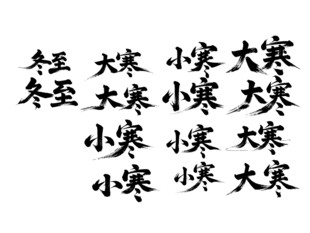 冬至 大寒 小寒 大寒
冬至 大寒 小寒 大寒
小寒 小寒 大寒
小寒 小寒 大寒